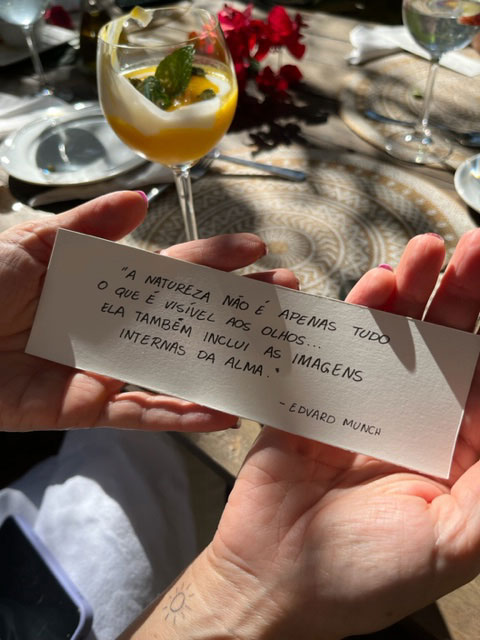 "A NATUREZA NÃO É APENAS TUDO
O QUE É VISÍVEL AOS OLHOS...
ELA TAMBÉM INCLUI AS IMAGENS
INTERNAS DA ALMA."
- EDVARD MUNCH